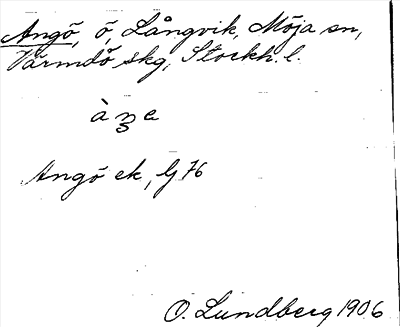 Angö, ö, Långvik, Möja sn,
Värmdö skg, Stockh. l.
Angö ek, G 76
O. Lundberg 1906